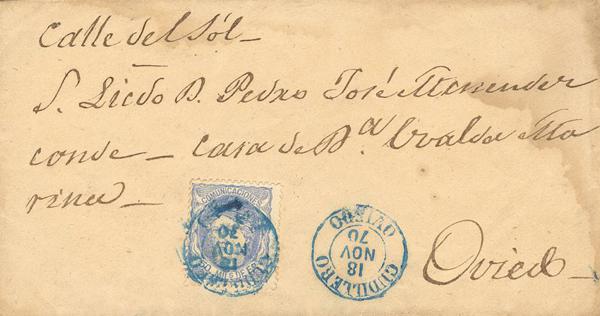 Calle del Sól_
S. Licdo D. Pedro José Menendez
conde_ casa de Dª Ubalda Ma
rina_
Oviedo_
COMUNICACIONES
CUDILLERO
18
NOV
70
OVIEDO
CUDILLERO
18
NOV
70